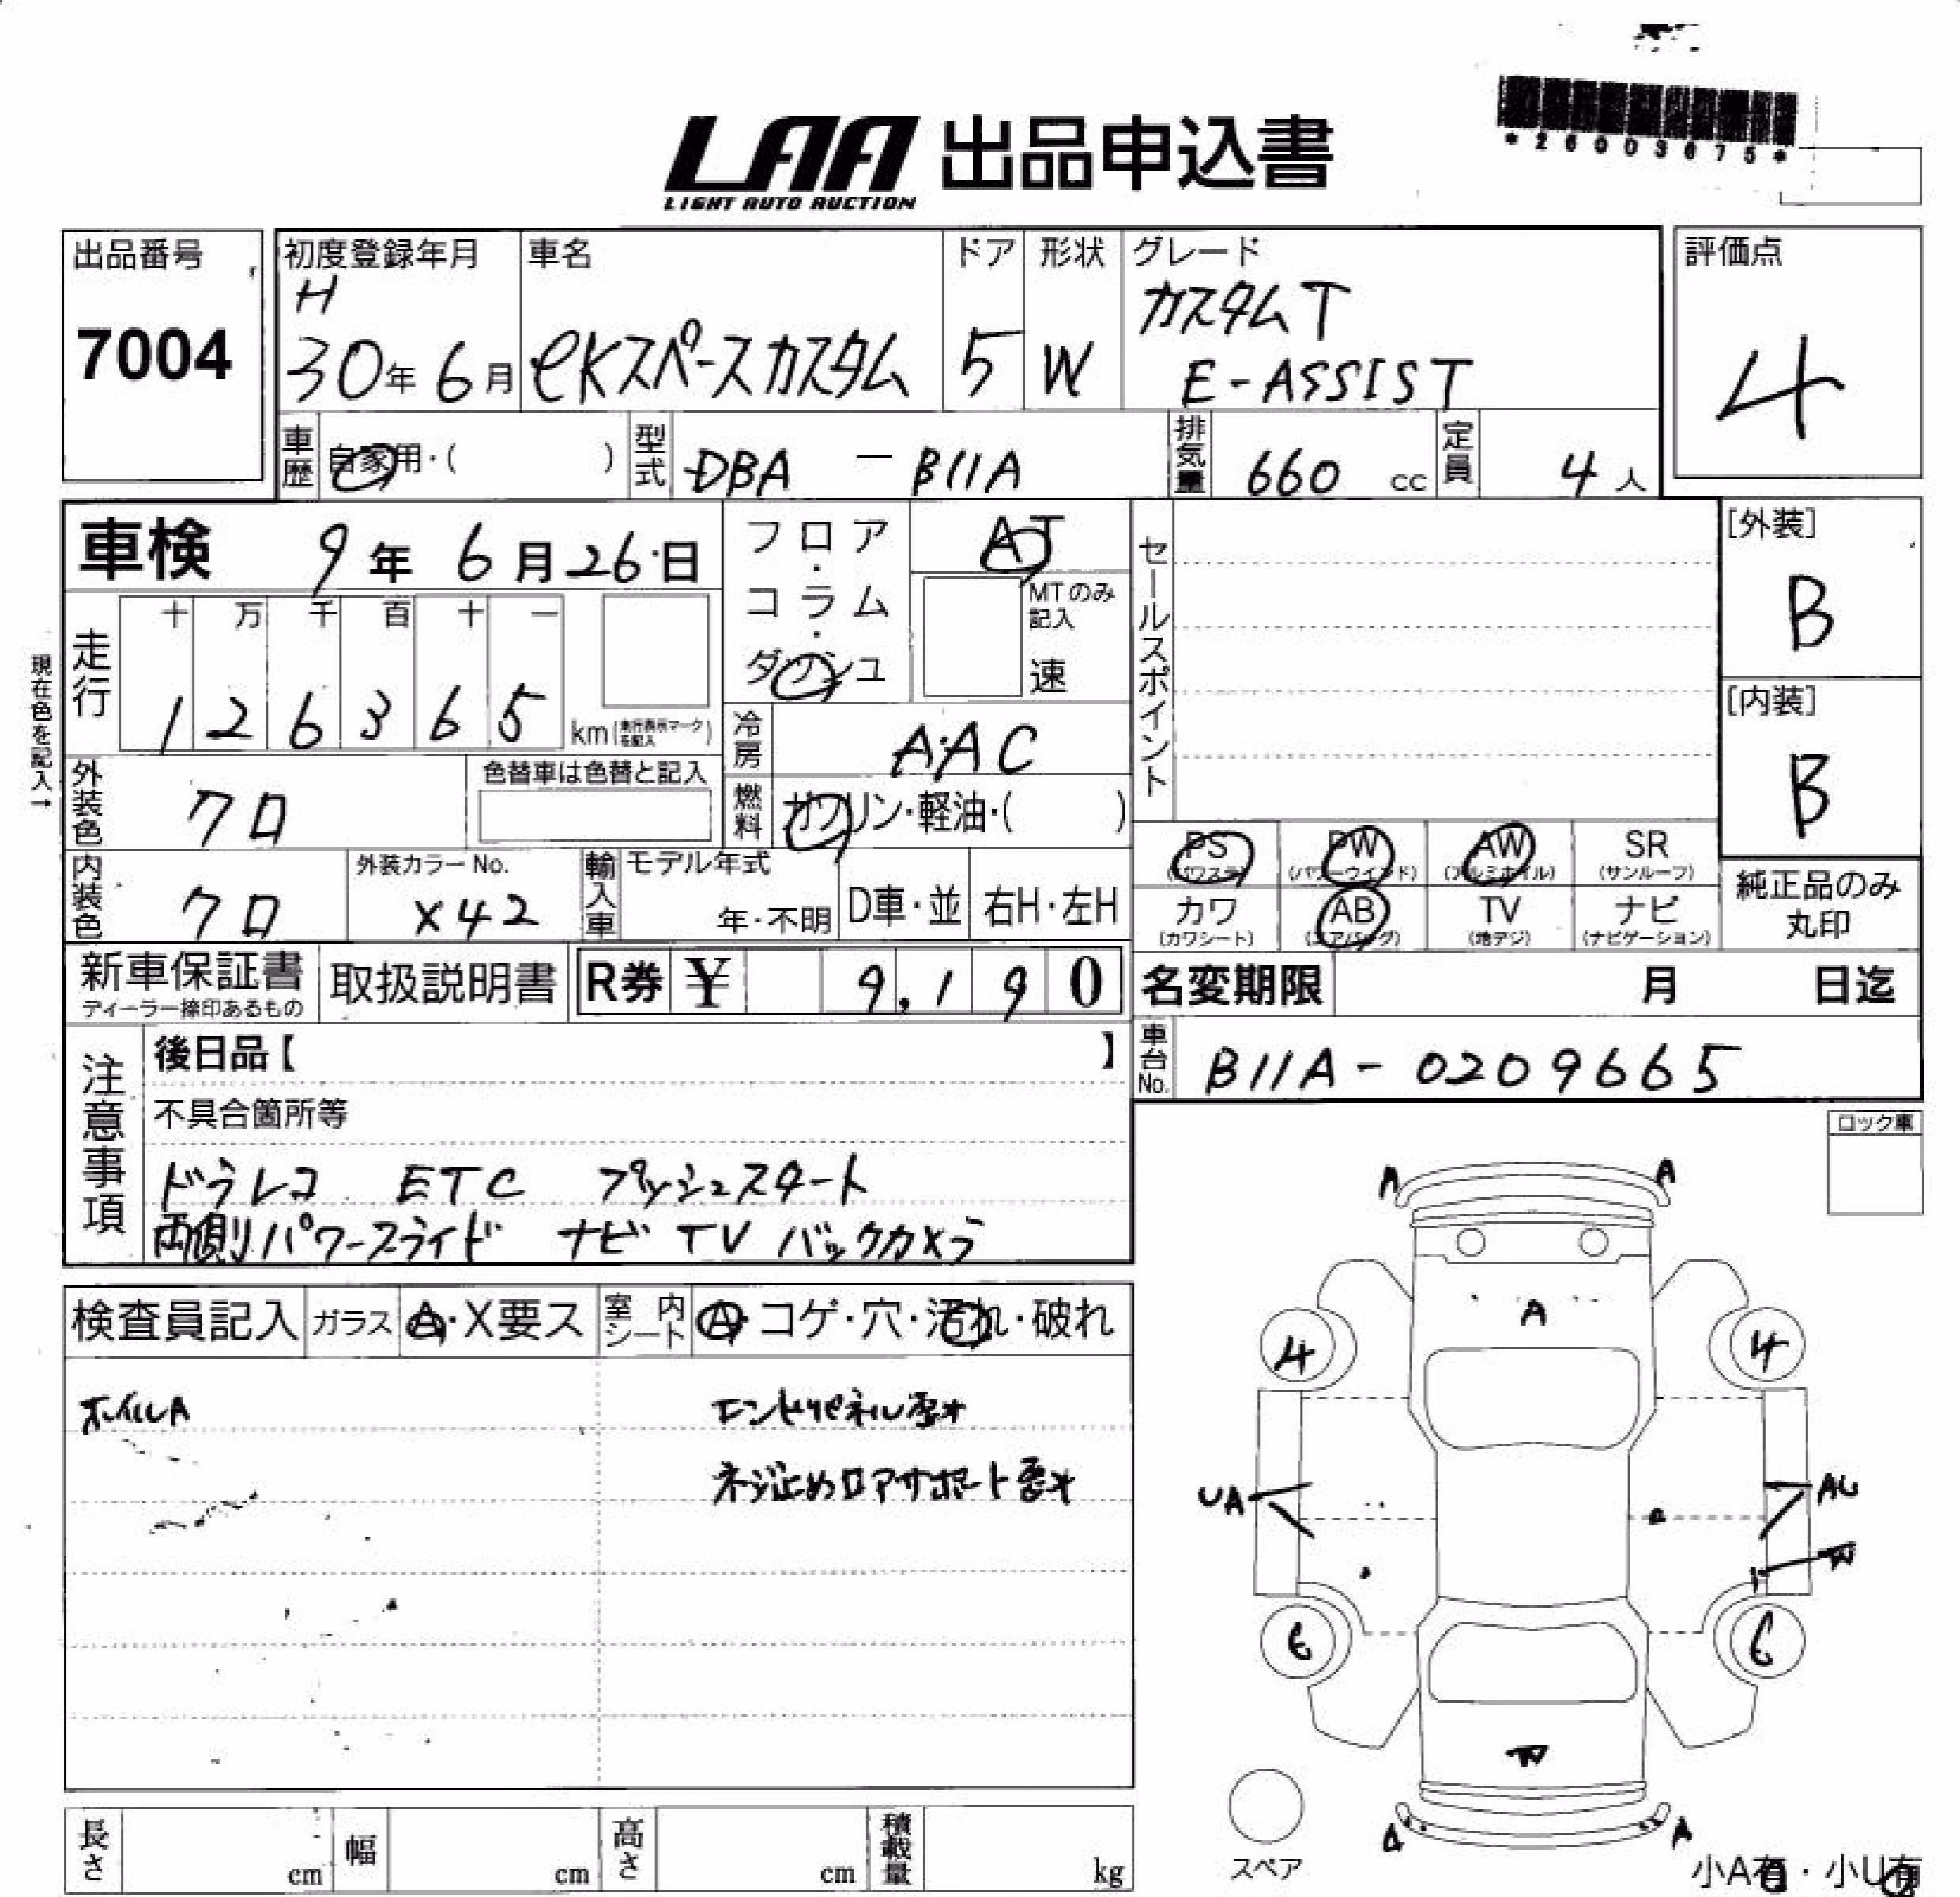 *26003675*
LAA 出品申込書
LIGHT AUTO AUCTION
出品番号
7004
初度登録年月
H
30年 6月
車名
eKスペースカスタム
ドア
5
形状
W
グレード
カスタムT
E-ASSIST
評価点
4
車歴 自家用・( )
型式 DBA — B11A
排気量 660 cc
定員 4人
車検 9年 6月 26日
フロア・コラム・ダッシュ
AT
MTのみ記入
速
セールスポイント
[外装]
B
[内装]
B
現在色を記入→
走行
十 万 千 百 十 一
1 2 6 3 6 5 km (走行表示マークを記入)
冷房 A・AC
外装色 クロ
色替車は色替と記入
燃料 ガソリン・軽油・( )
内装色 クロ
外装カラーNo.
X42
輸入車 モデル年式
年・不明
D車・並
右H・左H
PS (パワステ)
PW (パワーウインド)
AW (アルミホイル)
SR (サンルーフ)
カワ (カワシート)
AB (エアバッグ)
TV (地デジ)
ナビ (ナビゲーション)
純正品のみ
丸印
新車保証書
ディーラー捺印あるもの
取扱説明書
R券 ¥ 9,190
名変期限 月 日迄
車台No. B11A-0209665
注意事項
後日品【 】
不具合箇所等
ドラレコ ETC プッシュスタート
両側パワースライド ナビ TV バックカメラ
ロック車
検査員記入
ガラス A・X要ス
室内シート A・コゲ・穴・汚れ・破れ
ホイルA
エンドパネル歪*
ネジ止めロアサポート歪*
A A
A
4 4
UA AU
W
6 6
W
A A
スペア
小A有・小U有
長さ cm
幅 cm
高さ cm
積載量 kg